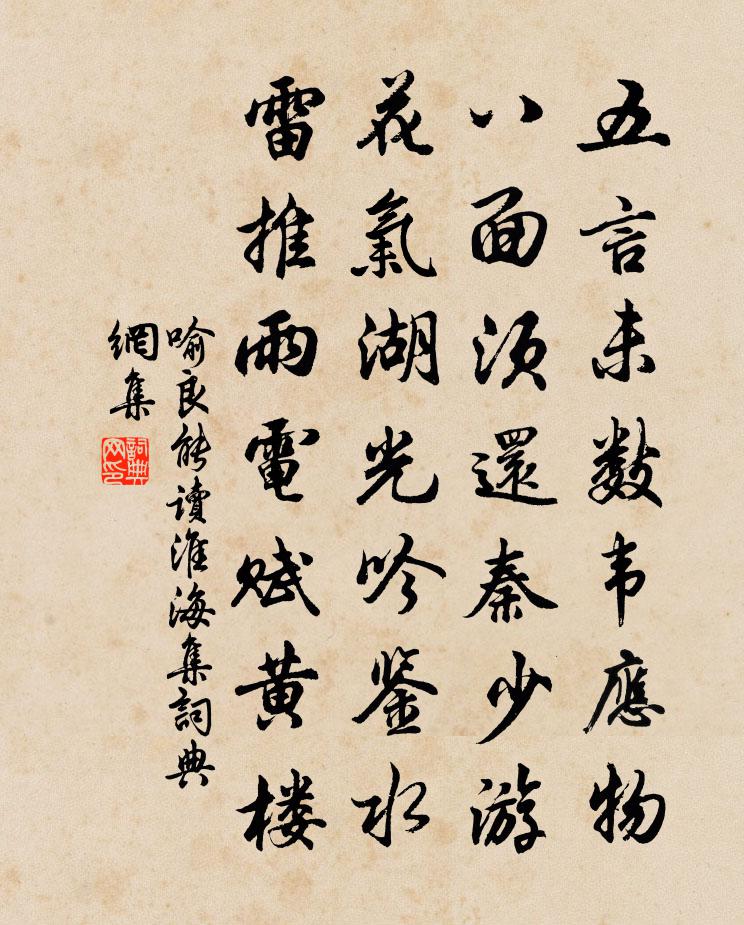 五言未数韦應物
八面须還秦少游
花氣湖光吟鉴水
雷推雨電赋黄楼
喻良能讀淮海集詞典
網集
詞典网印